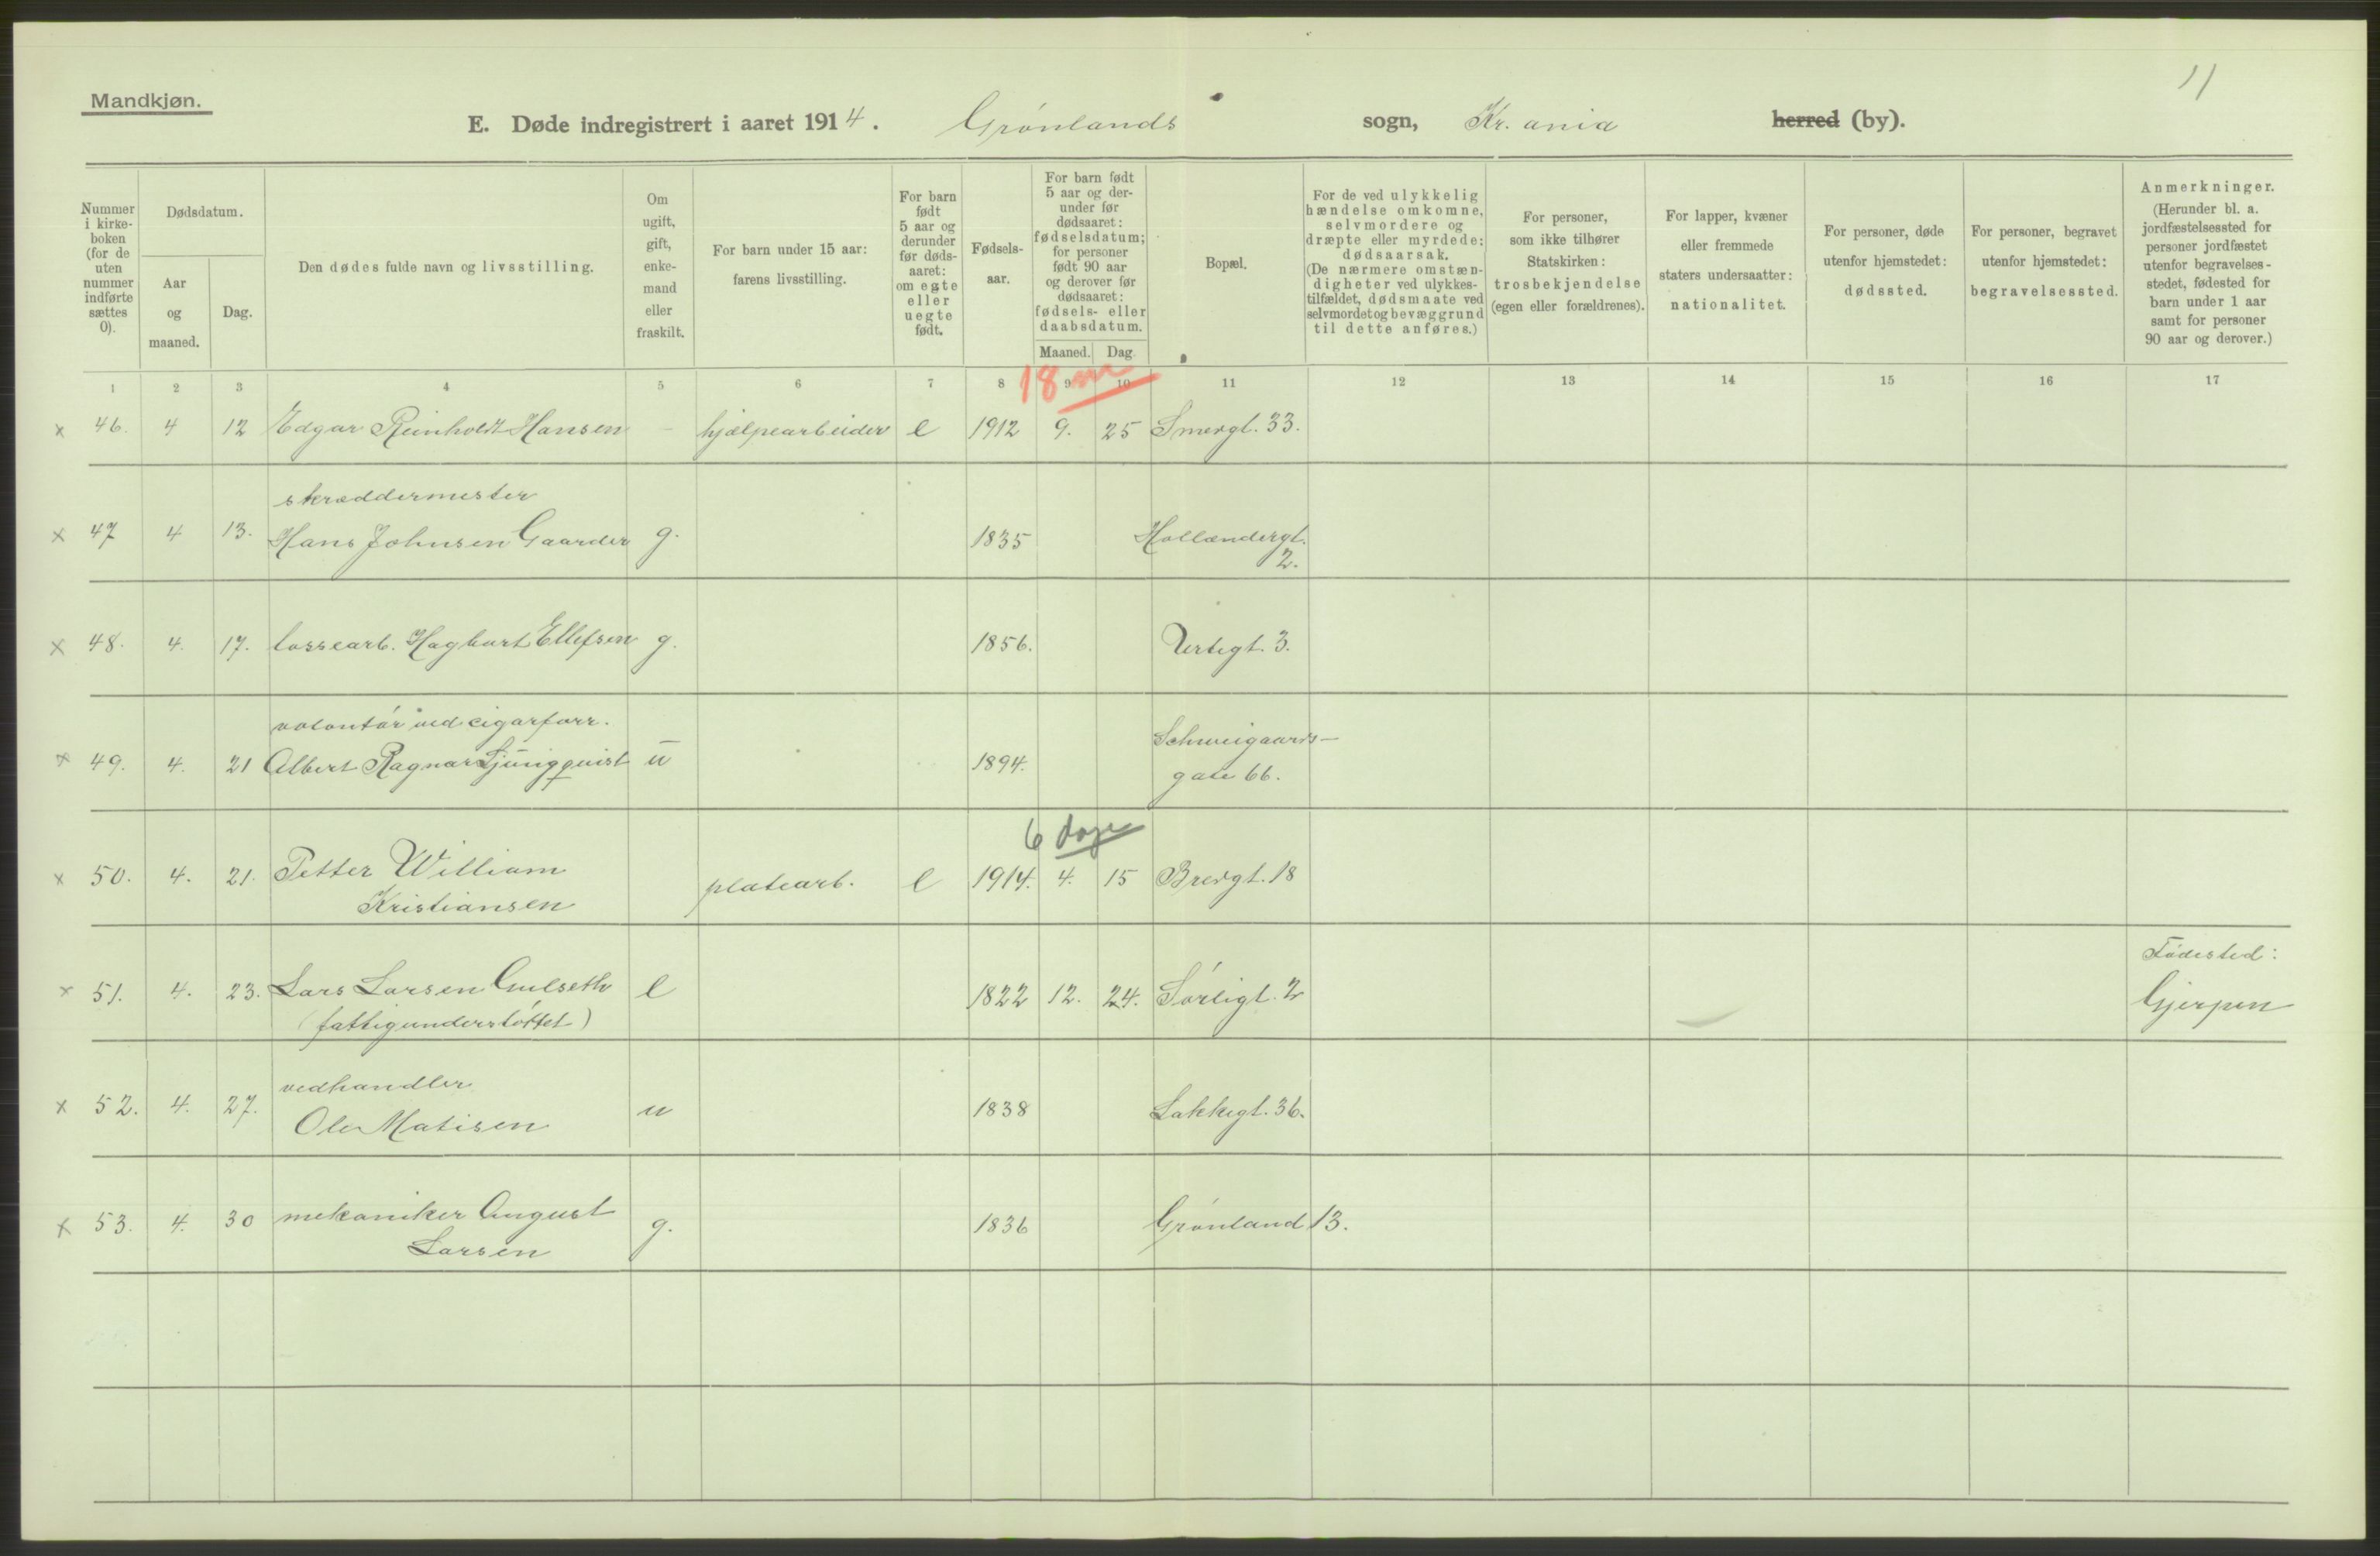 11
Mandkjøn.
E. Døde indregistrert i aaret 1914. Grønlands sogn, Kr.ania herred (by).
Nummer i kirke-boken (for de uten nummer indførte sættes 0).
Dødsdatum.
Aar og maaned.
Dag.
Den dødes fulde navn og livsstilling.
Om ugift, gift, enke-mand eller fraskilt.
For barn under 15 aar: farens livsstilling.
For barn født 5 aar og derunder før døds-aaret: om egte eller uegte født.
Fødsels-aar.
For barn født 5 aar og der-under før dødsaaret: fødselsdatum; for personer født 90 aar og derover før dødsaaret: fødsels- eller daabsdatum.
Maaned. Dag.
Bopæl.
For de ved ulykkelig hændelse omkomne, selvmordere og dræpte eller myrdede: dødsaarsak. (De nærmere omstæn-digheter ved ulykkes-tilfældet, dødsmaate ved selvmordet og bevæggrund til dette anføres.)
For personer, som ikke tilhører Statskirken: trosbekjendelse (egen eller forældrenes).
For lapper, kvæner eller fremmede staters undersaatter: nationalitet.
For personer, døde utenfor hjemstedet: dødssted.
For personer, begravet utenfor hjemstedet: begravelsessted.
Anmerkninger. (Herunder bl. a. jordfæstelsessted for personer jordfæstet utenfor begravelses-stedet, fødested for barn under 1 aar samt for personer 90 aar og derover.)
1 2 3 4 5 6 7 8 9 10 11 12 13 14 15 16 17
18 m
x 46. 4 12 Edgar Reinholdt Hansen - hjælpearbeider e 1912 9. 25 Smedgt. 33.
skræddermester
x 47 4 13. Hans Johnsen Gaarder g. 1835 Hollændergt.
2.
x 48. 4. 17. lossearb. Hagbart Ellefsen g. 1856. Urtegt. 3.
volontør ved cigarforr.
x 49. 4. 21 Albert Ragnar Ljungquist u 1894. Schweigaards-
gate 66.
6 dage
x 50. 4. 21. Petter William platearb. e 1914. 4. 15 Bredgt. 18
Kristiansen
Fødested:
x 51. 4. 23. Lars Larsen Gulseth e 1822 12. 24. Sørligt. 2 Gjerpen
(fattigunderstøttet)
vedhandler
x 52. 4. 27. Ole Matisen u 1838 Lakkegt. 36.
x 53. 4. 30 mekaniker August g. 1836 Grønland 13.
Larsen